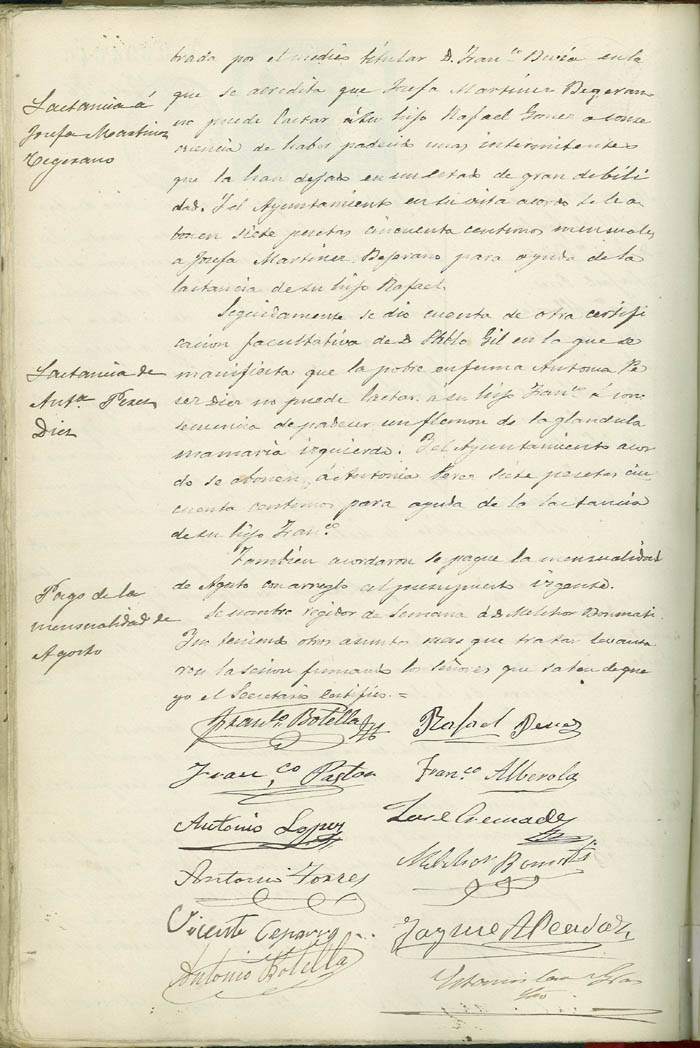 trada por el medico titular D. Fran.co Bevia en la
que se acredita que Josefa Martinez Begerano
no puede lactar á su hijo Rafael Gomez a conse
cuencia de haber padecido unas intermitentes
que la han dejado en un estado de gran debili
dad. Y el Ayuntamiento en su vista acordó se le a
bonen siete pesetas cincuenta centimos mensuales
a Josefa Martinez Bejerano para ayuda de la
lactancia de su hijo Rafael.
Lactancia á
Josefa Martinez
Begerano
Seguidamente se dio cuenta de otra certifi
cacion facultativa de D. Pablo Gil en la que se
manifiesta que la pobre enferma Antonia Pe
rez Diez no puede lactar á su hijo Fran.co á con
secuencia de padecer un flemon de la glandula
mamaria izquierda. Y el Ayuntamiento acor
do se abonen á Antonia Perez siete pesetas cin
cuenta centimos para ayuda de la lactancia
de su hijo Fran.co
Lactancia de
Ant.a Perez
Diez
Tambien acordaron se pague la mensualidad
de Agosto con arreglo al presupuesto vigente.
Pago de la
mensualidad de
Agosto
Se nombró regidor de semana á D. Melchor Bonmati.
Y no teniendo otros asuntos mas que tratar levanta
ron la sesion firmando los señores que saben de que
yo el Secretario certifico.=
Fran.co Botella Rafael Perez
Fran.co Pastor Fran.co Alberola
Antonio Lopez José Cremades
Antonio Torres Melchor Bonmati
Vicente Jayme
Antonio Botella Estanislao